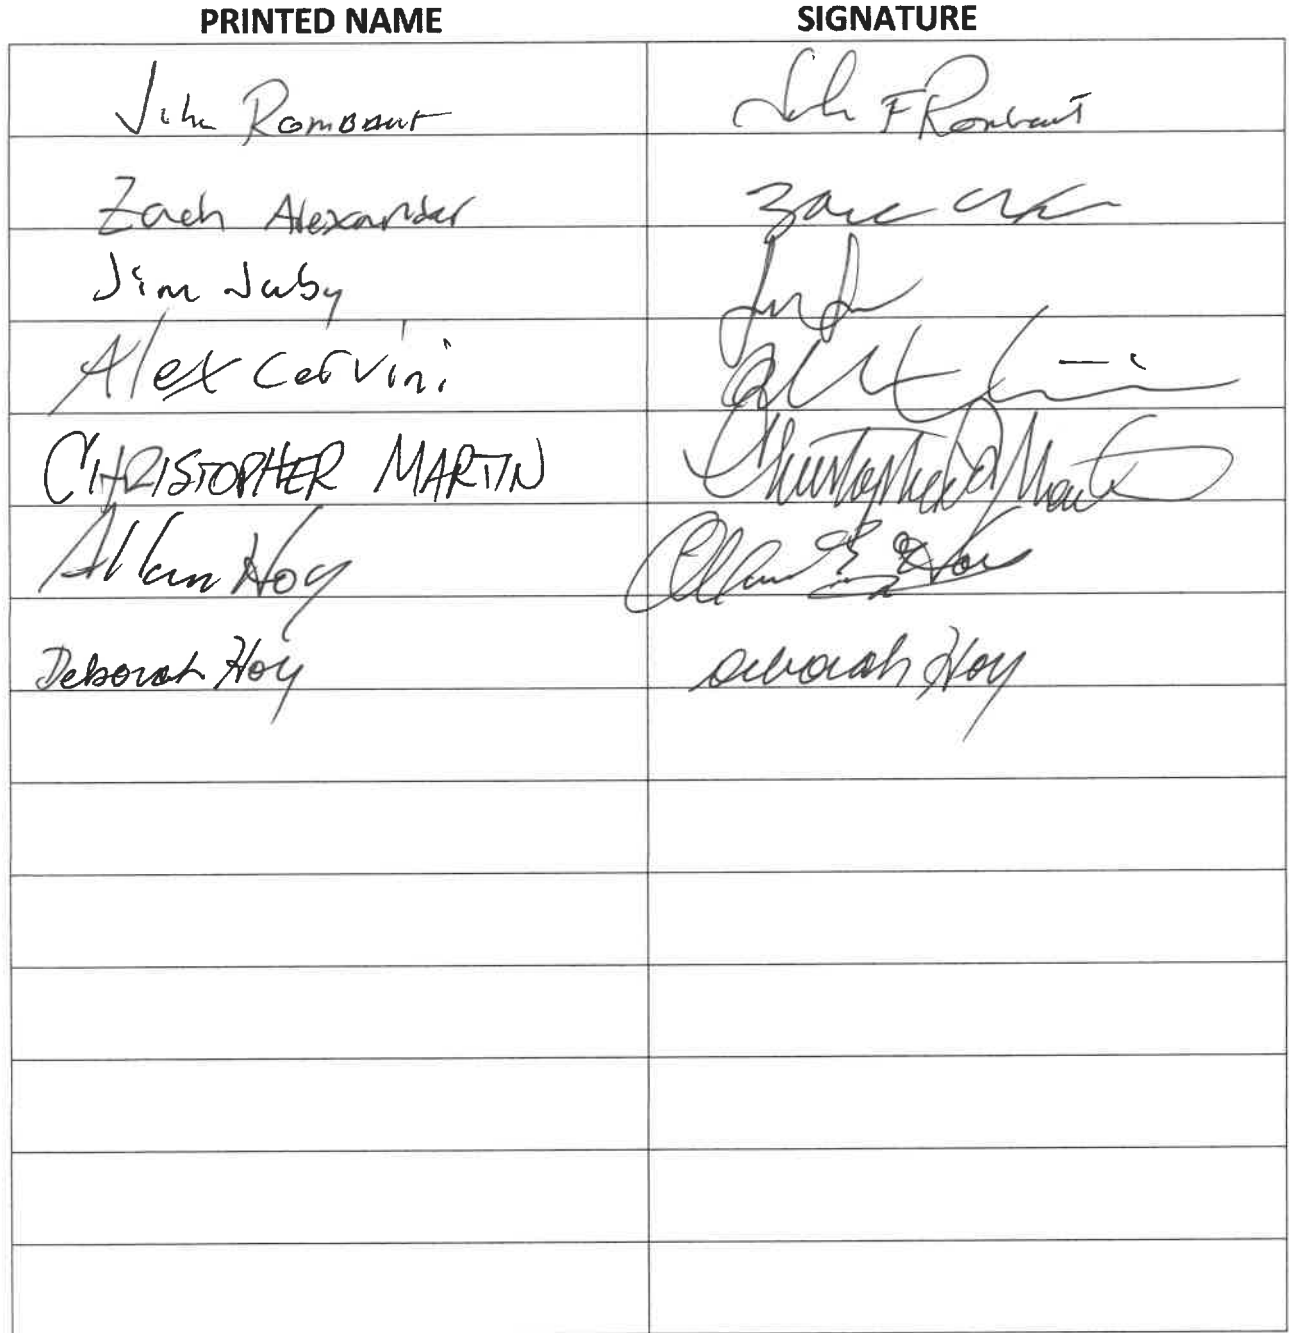 PRINTED NAME SIGNATURE
John Rombaut John F Rombaut
Zach Alexander Zach
Jim Juby
Alex Cervini
CHRISTOPHER MARTIN Christopher Mart
Allan Hoy Allan E Hoy
Deborah Hoy Deborah Hoy